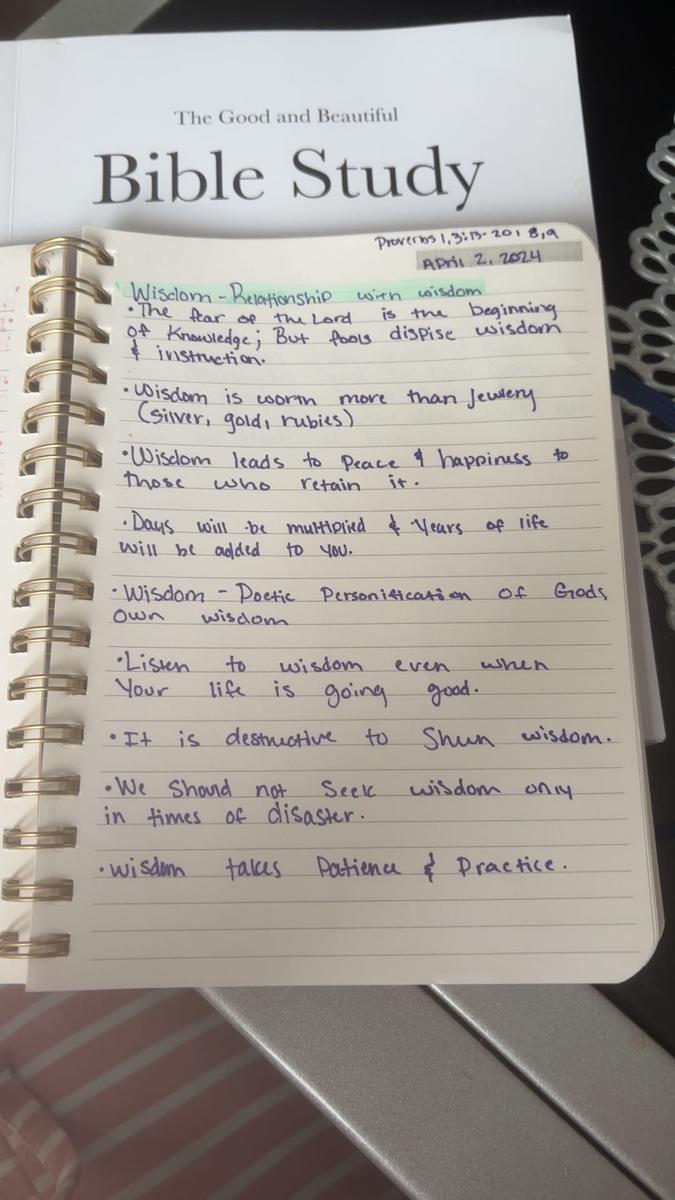 The Good and Beautiful
Bible Study
Proverbs 1, 3:13-20, 8,9
April 2, 2024
Wisdom - Relationship with wisdom
• The fear of the Lord is the beginning
of Knowledge; But fools dispise wisdom
& instruction.
• Wisdom is worth more than Jewlery
(silver, gold, rubies)
• Wisdom leads to Peace & happiness to
those who retain it.
• Days will be multiplied & Years of life
will be added to you.
• Wisdom - Poetic Personification of Gods
own wisdom
• Listen to wisdom even when
Your life is going good.
• It is destructive to Shun wisdom.
• We Should not Seek wisdom only
in times of disaster.
• wisdom takes Patience & Practice.